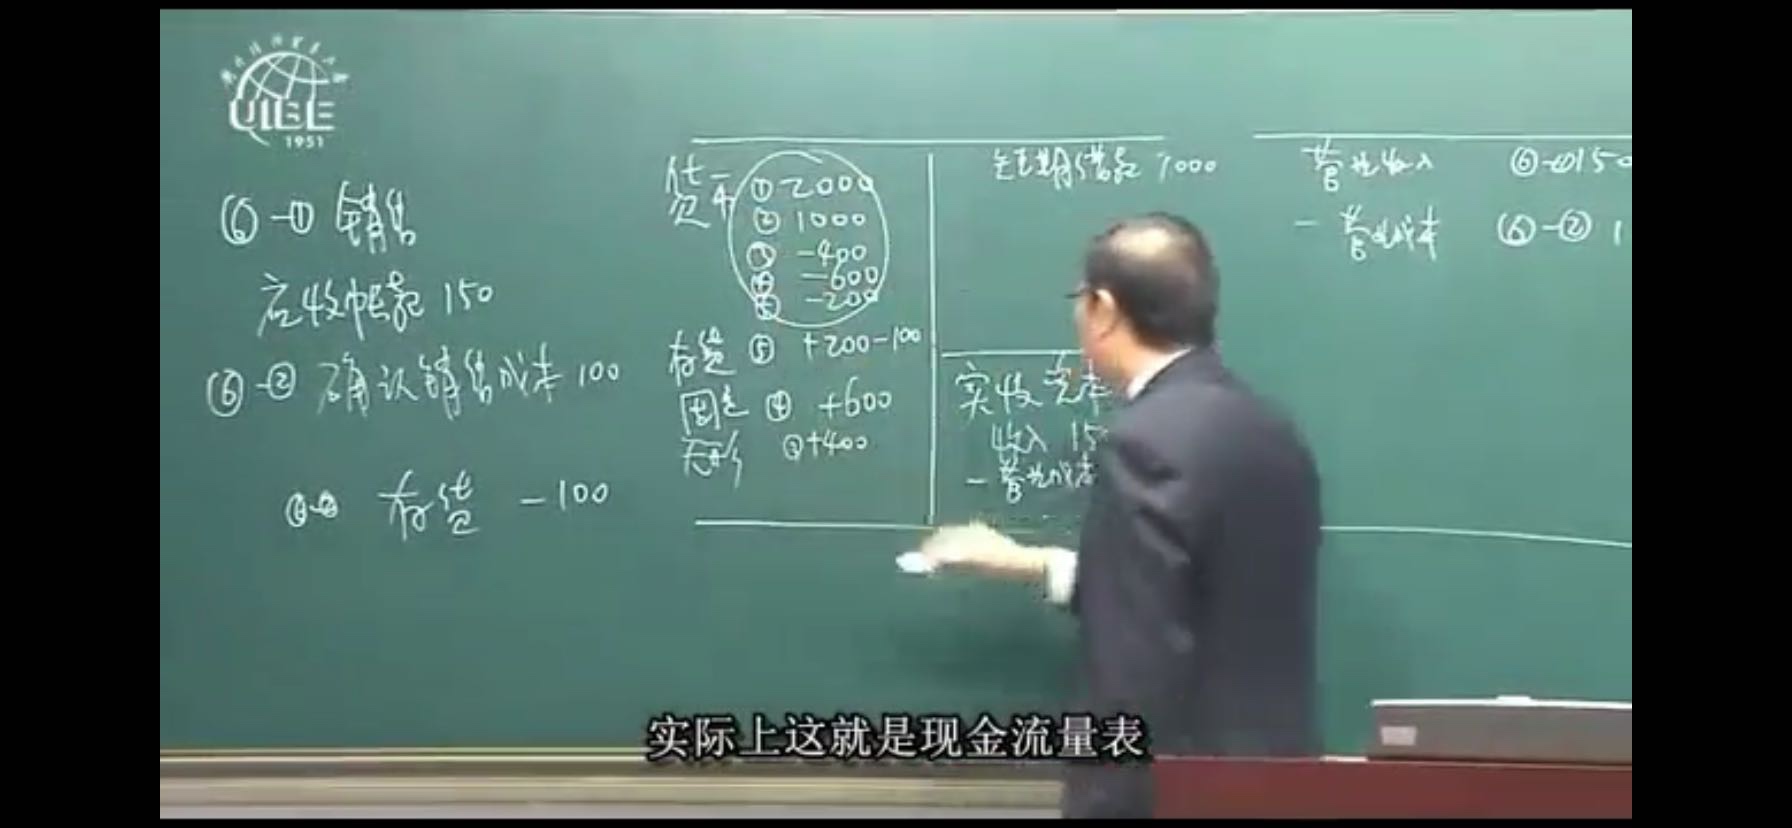 UIBE
1951
⑥-① 销售
应收帐款 150
⑥-② 确认销售成本 100
存货 -100
货币 ① 2000
② 1000
③ -400
④ -600
⑤ -200
存货 ⑤ +200-100
固定 ④ +600
无形 ③+400
短期借款 1000
实收资本
收入 15
- 营业成本
营业收入 ⑥-①150
- 营业成本 ⑥-② 1
实际上这就是现金流量表